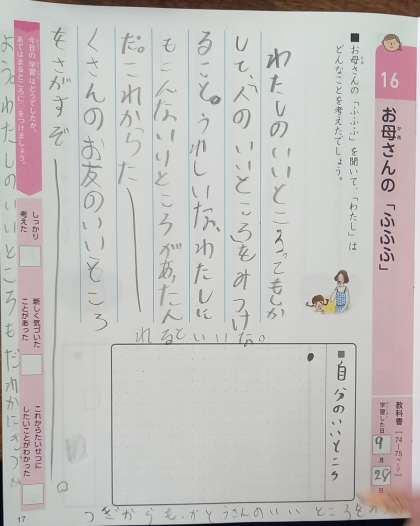 16
お母さんの「ふふふ」
かあ
教科書 [74〜75ページ]
学習した日
9月28日
■お母さんの「ふふふ」を聞いて、「わたし」は
どんなことを考えたでしょう。
わたしのいいところってもしか
して、「人のいいところ」をみつけ
ること。うれしいな、わたしに
もこんないいところがあったん
だ。これからた
くさんのお友のいいところ
をさがすぞ
れるといいな。
■自分のいいところ
今日の学習はどうでしたか。
あてはまるところに○をつけましょう。
しっかり
考えた
新しく気づいた
ことがあった
これからたいせつに
したいことがわかった
ようわたしのいいところもだれかに
つぎからも
さんのいいところを
17